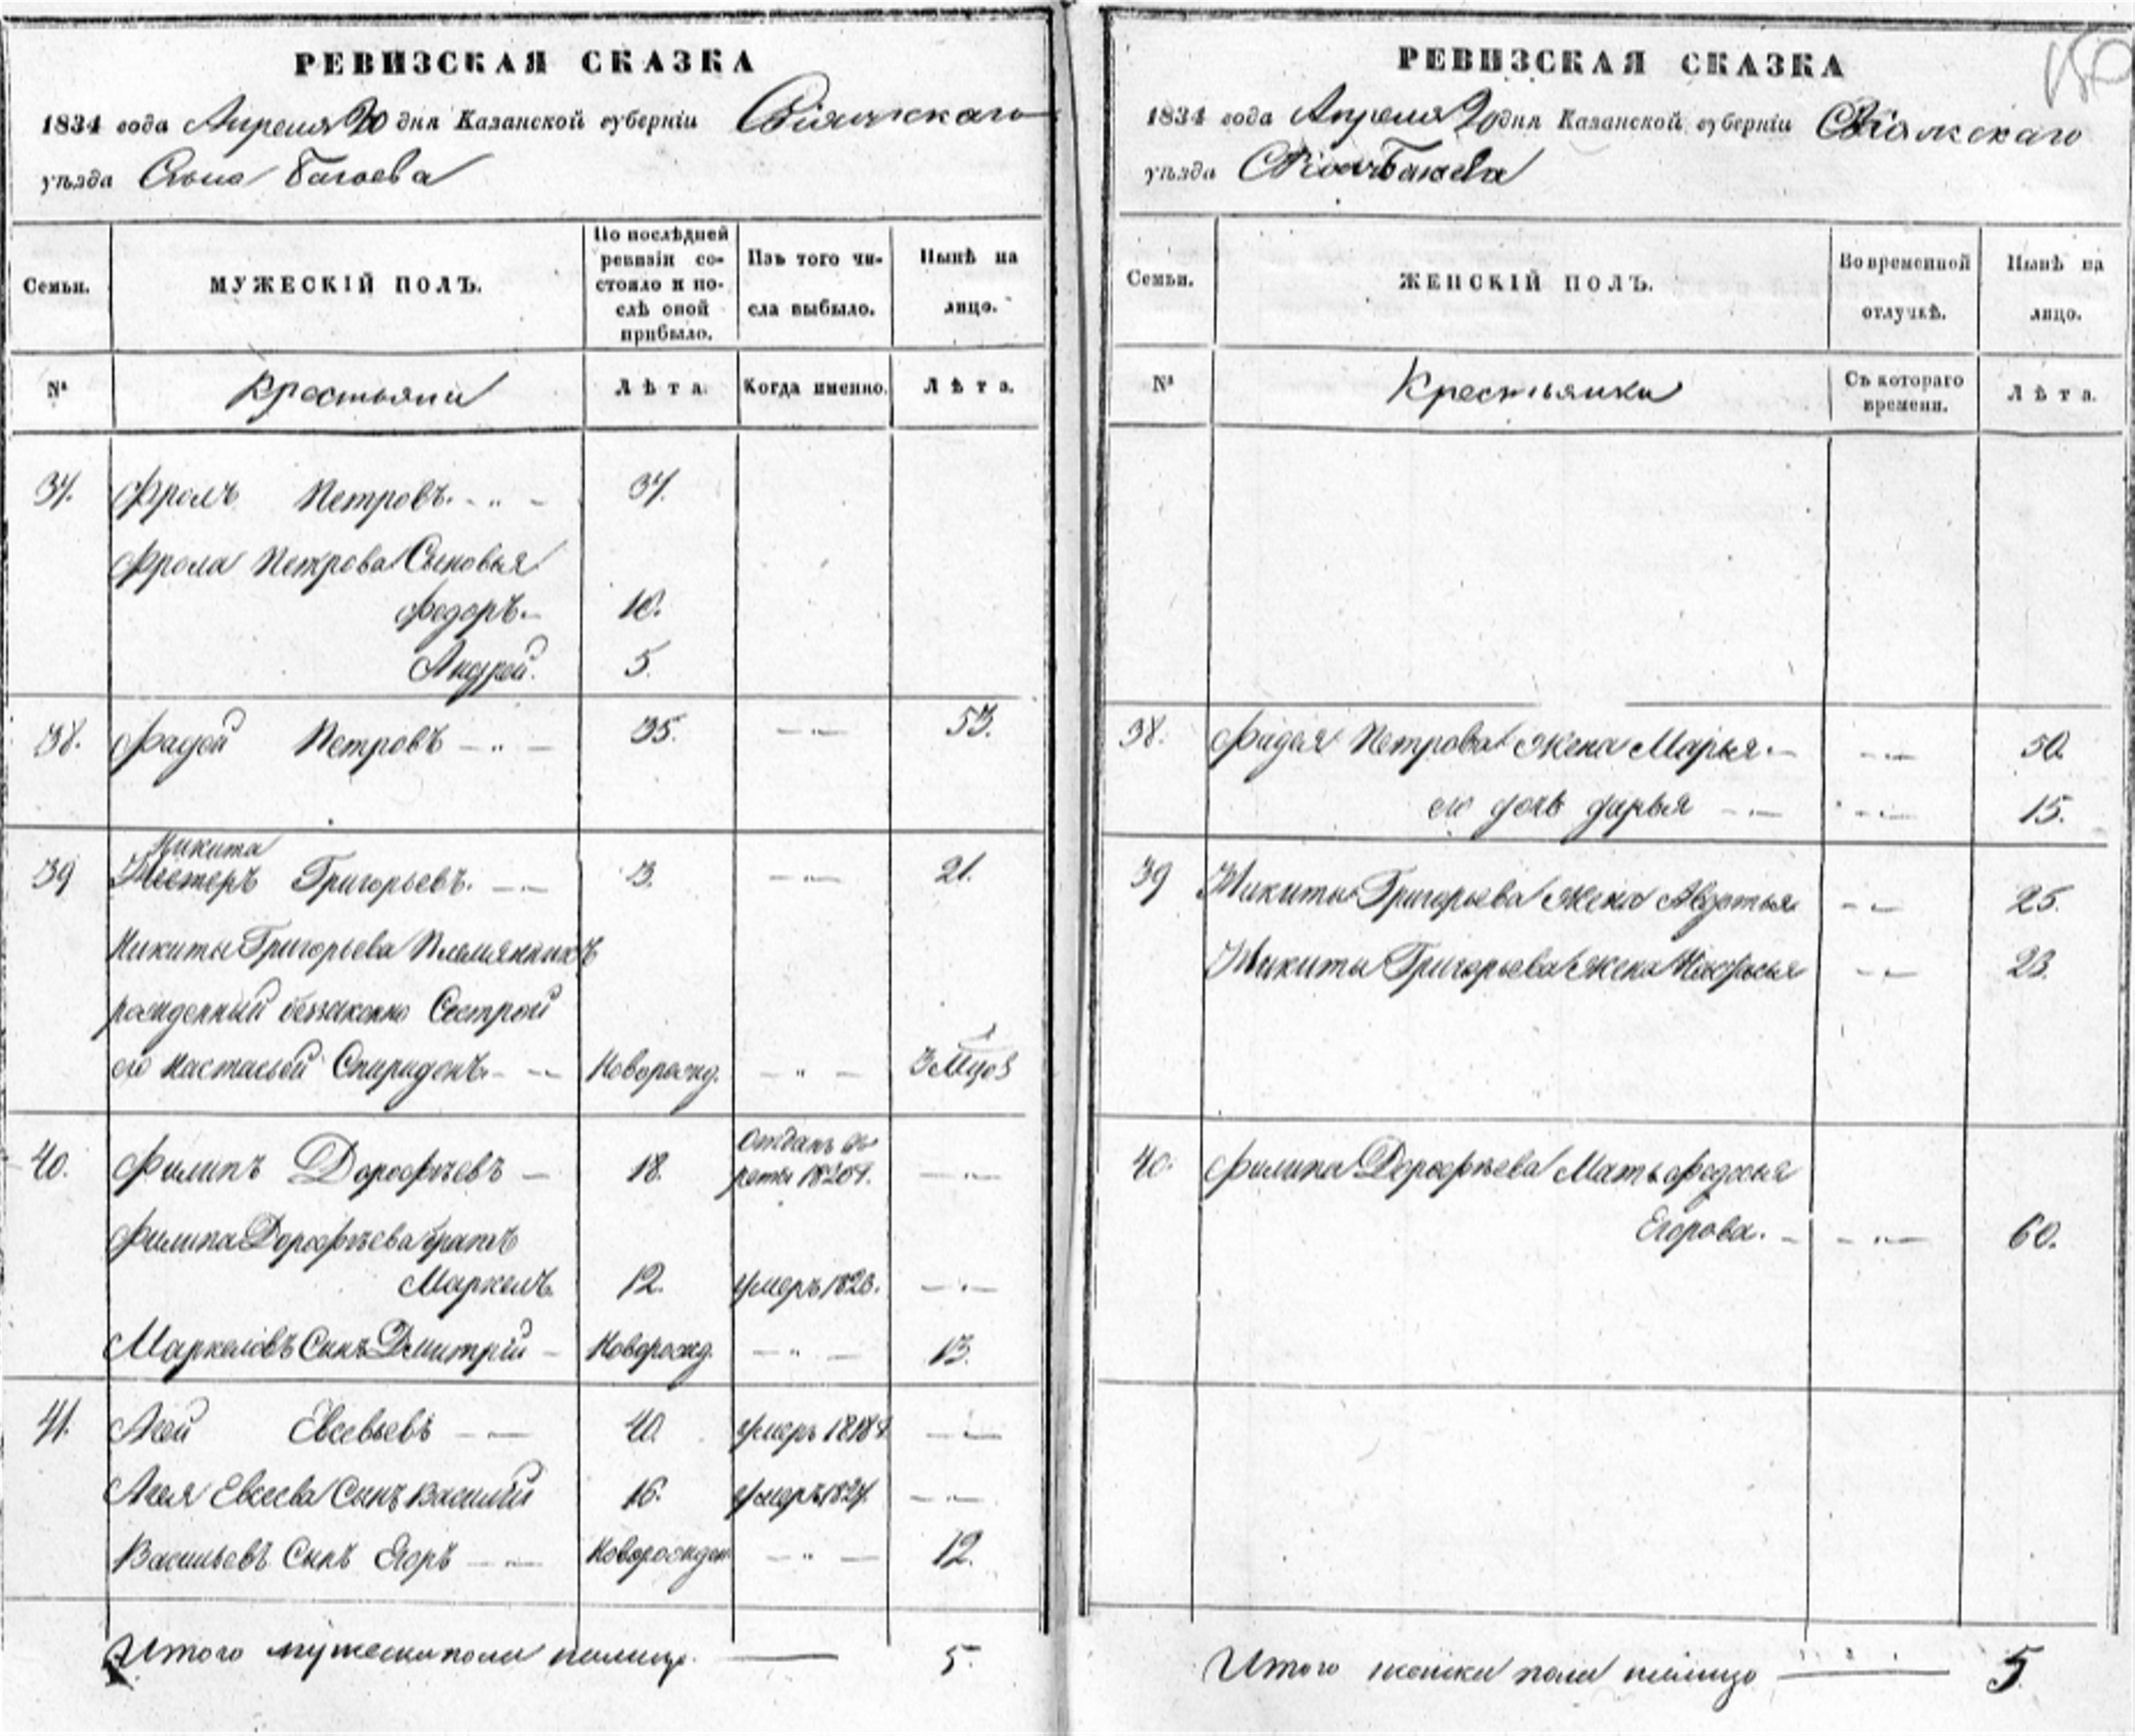 РЕВИЗСКАЯ СКАЗКА
1834 года Апреля 20 дня Казанской губерніи Свіяжскаго
уѣзда Села
Семьи.
МУЖЕСКІЙ ПОЛЪ.
По послѣдней ревизіи состояло и послѣ оной прибыло.
Изъ того числа выбыло.
Нынѣ на лицо.
№
Крестьяни
Лѣта.
Когда именно.
Лѣта.
37. Фролъ Петровъ. 37.
Фрола Петрова Сыновья
Федоръ. 10.
Андрей. 5.
38. Фадей Петровъ 35. 53.
Никита
39 Григорьевъ. 3. 21.
Никиты Григорьева Племянникъ
рожденный беззаконно Сестрой
его Настасьей Спиридонъ. Новорожд. 3 Мцов
40. Филипъ Дорофѣевъ 18. Отданъ въ
1820 г.
Филипа Дорофѣева братъ
Маркелъ. 12. умеръ 1823.
Маркеловъ Сынъ Дмитрій Новорожд. 13.
41. Агей Евсевьевъ 40. умеръ 1818 г.
Агея Евсеева Сынъ Василий 16. умеръ 1827.
Васильевъ Сынъ Егоръ Новорожден 12.
Итого мужеска пола налицо. 5.
РЕВИЗСКАЯ СКАЗКА
1834 года Апреля 20 дня Казанской губерніи Свіяжскаго
уѣзда
Семьи.
ЖЕНСКІЙ ПОЛЪ.
Во временной отлучкѣ.
Нынѣ на лицо.
№
Крестьянки
Съ котораго времени.
Лѣта.
38. Фадея Петрова жена Марья. 50.
его дочь дарья 15.
39 Никиты Григорьева жена Авдотья 25.
Никиты Григорьева жена 23.
40. Филипа Дорофѣева Мать Федосья
Егорова. 60.
Итого женска пола налицо 5.